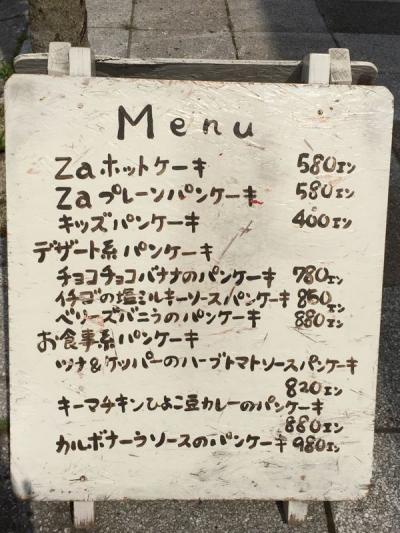 Menu
Zaホットケーキ 580エン
Zaプレーンパンケーキ 580エン
キッズパンケーキ 400エン
デザート系パンケーキ
チョコチョコバナナのパンケーキ 780エン
イチゴの塩ミルキーソースパンケーキ 850エン
ベリーズバニラのパンケーキ 880エン
お食事系パンケーキ
ツナ&ケッパーのハーブトマトソースパンケーキ
820エン
キーマチキンひよこ豆カレーのパンケーキ
880エン
カルボナーラソースのパンケーキ 980エン